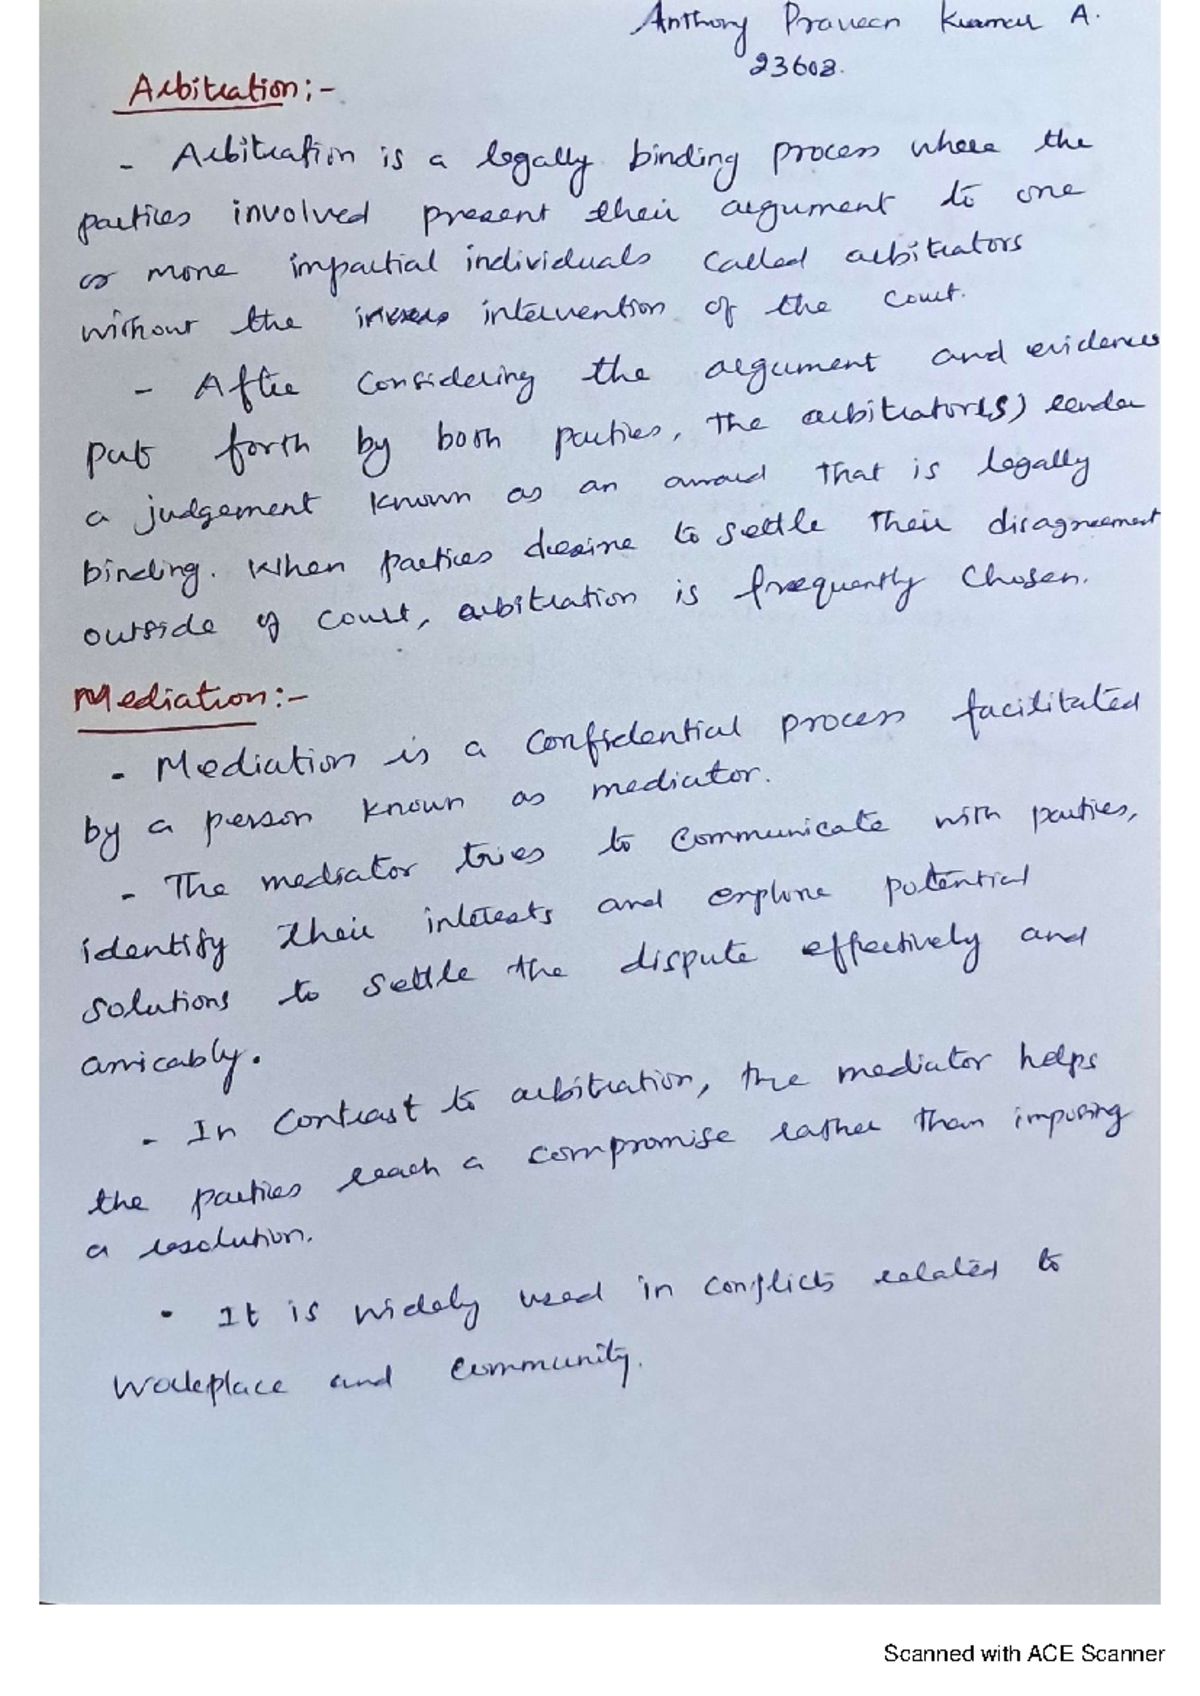 Anthony Praveen Kumar A.
23602.
Arbitration:-
- Arbitration is a legally binding process where the
parties involved present their argument to one
or more impartial individuals called arbitrators
without the intervention of the court.
- After considering the argument and evidences
put forth by both parties, the arbitrator(s) render
a judgement known as an award that is legally
binding. When parties desire to settle their disagreement
outside of court, arbitration is frequently chosen.
Mediation:-
- Mediation is a confidential process facilitated
by a person known as mediator.
- The mediator tries to communicate with parties,
identify their interests and explore potential
solutions to settle the dispute effectively and
amicably.
- In contrast to arbitration, the mediator helps
the parties reach a compromise rather than imposing
a resolution.
• It is widely used in conflicts related to
workplace and community.
Scanned with ACE Scanner